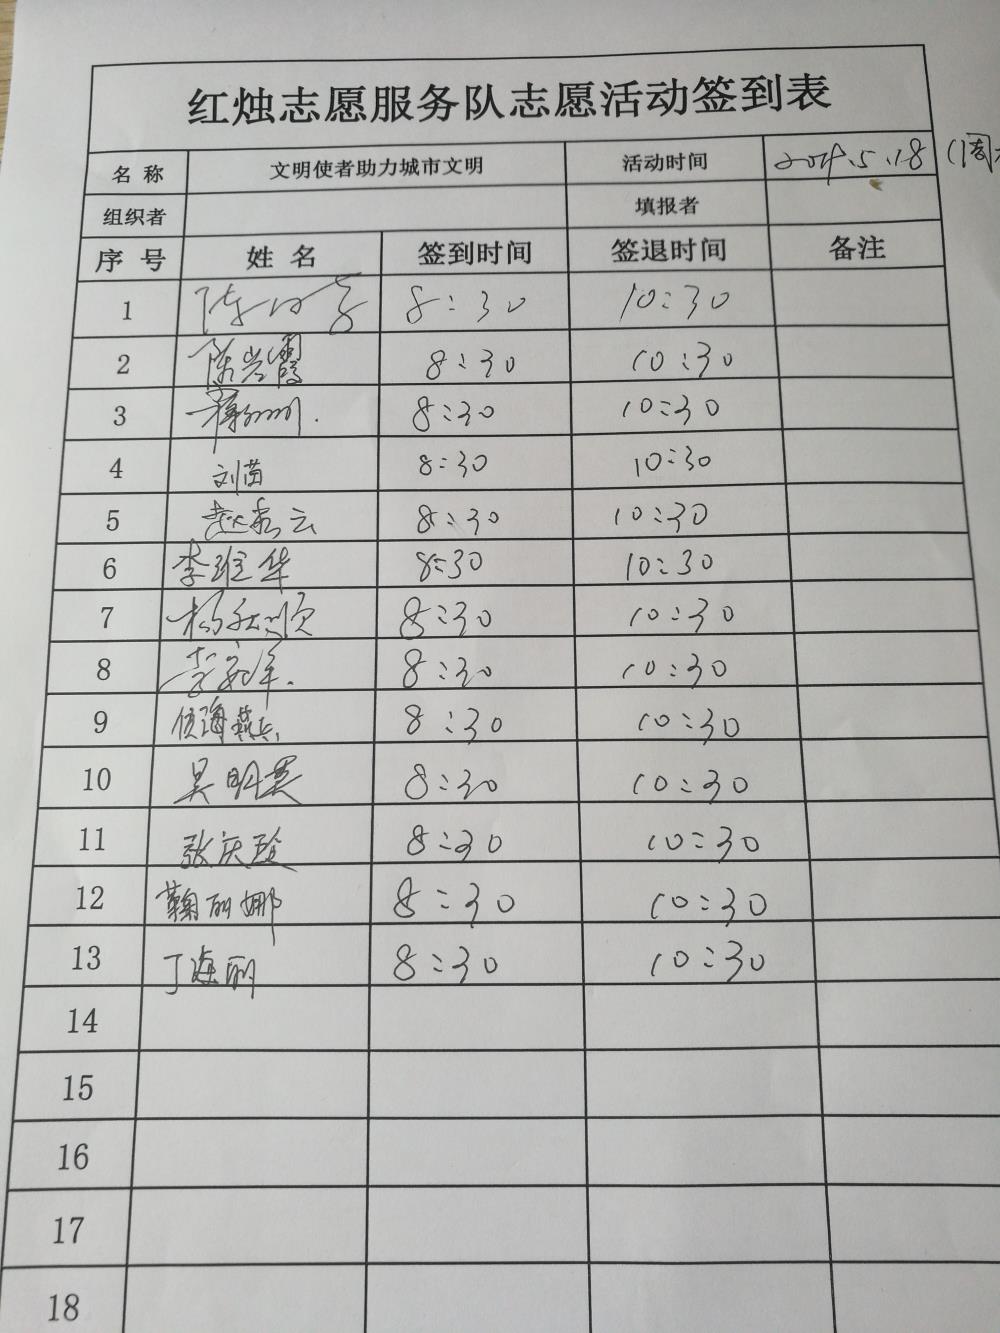 红烛志愿服务队志愿活动签到表
名称 文明使者助力城市文明 活动时间 5.18 (周
组织者 填报者
序号 姓名 签到时间 签退时间 备注
1 陈 8:30 10:30
2 陈兴霞 8:30 10:30
3 8:30 10:30
4 刘苗 8:30 10:30
5 赵 云 8:30 10:30
6 李维华 8:30 10:30
7 杨 顺 8:30 10:30
8 李 军 8:30 10:30
9 海燕 8:30 10:30
10 吴明 8:30 10:30
11 张庆 8:30 10:30
12 鞠丽娜 8:30 10:30
13 丁海丽 8:30 10:30
14
15
16
17
18